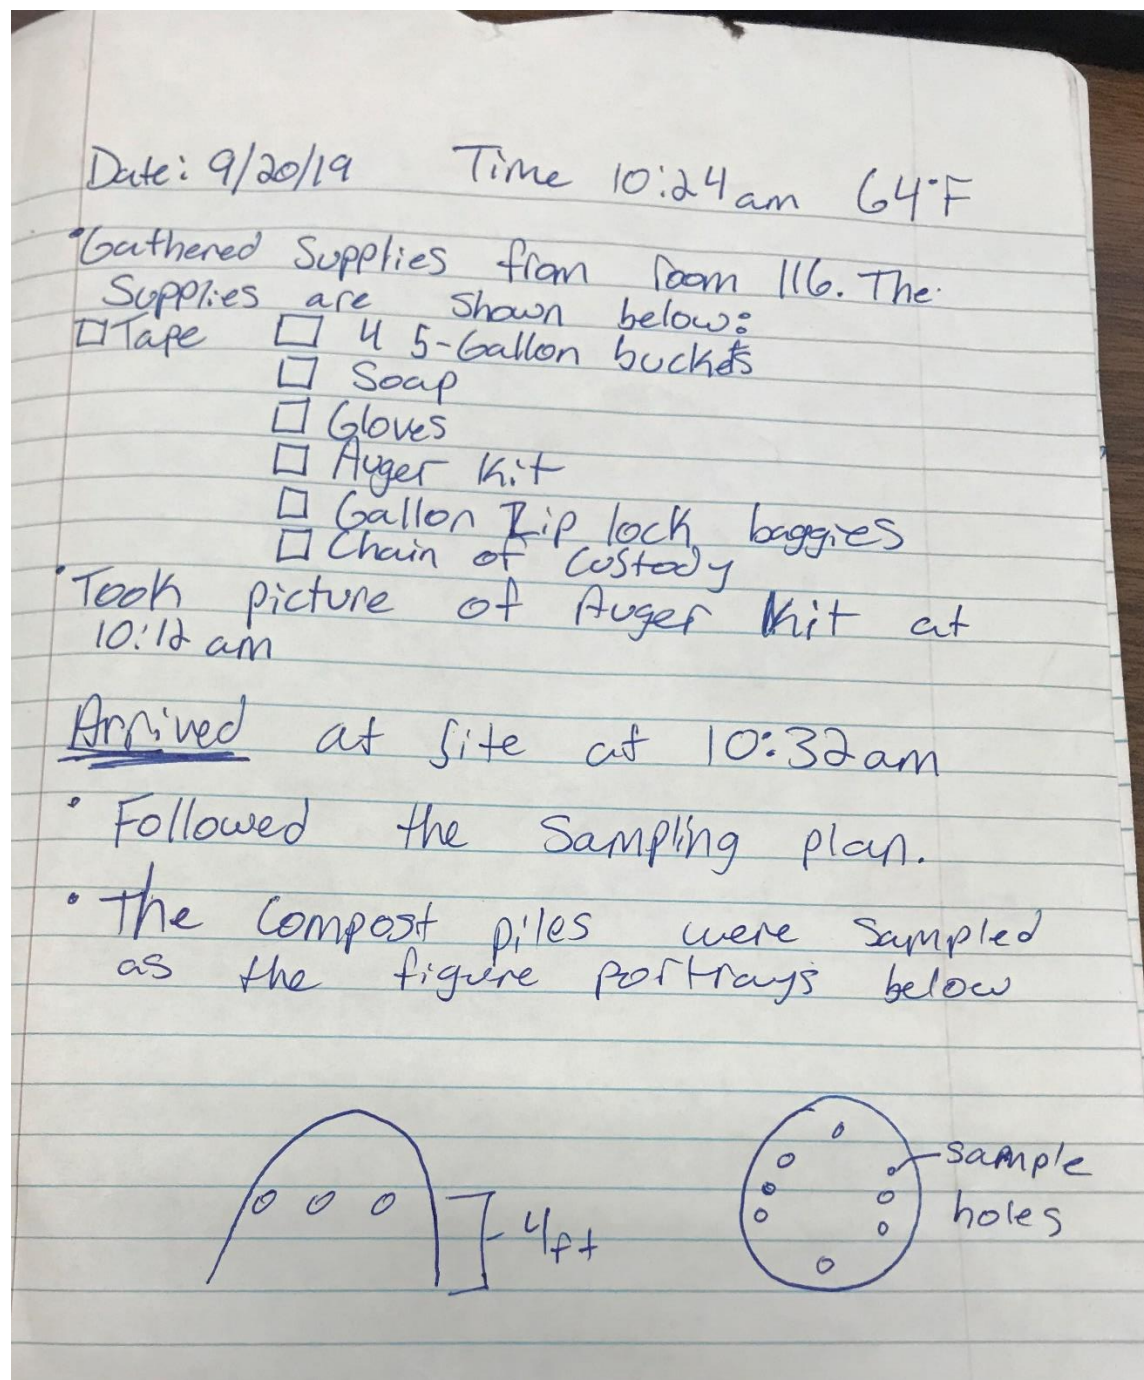 Date: 9/20/19 Time 10:24am 64°F
• Gathered Supplies from room 116. The
Supplies are shown below:
□ Tape □ 4 5-Gallon buckets
□ Soap
□ Gloves
□ Auger Kit
□ Gallon Zip lock baggies
□ Chain of Custody
• Took picture of Auger Kit at
10:12 am
Arrived at site at 10:32am
• Followed the Sampling plan.
• The Compost piles were Sampled
as the figure portrays below
4ft
sample
holes